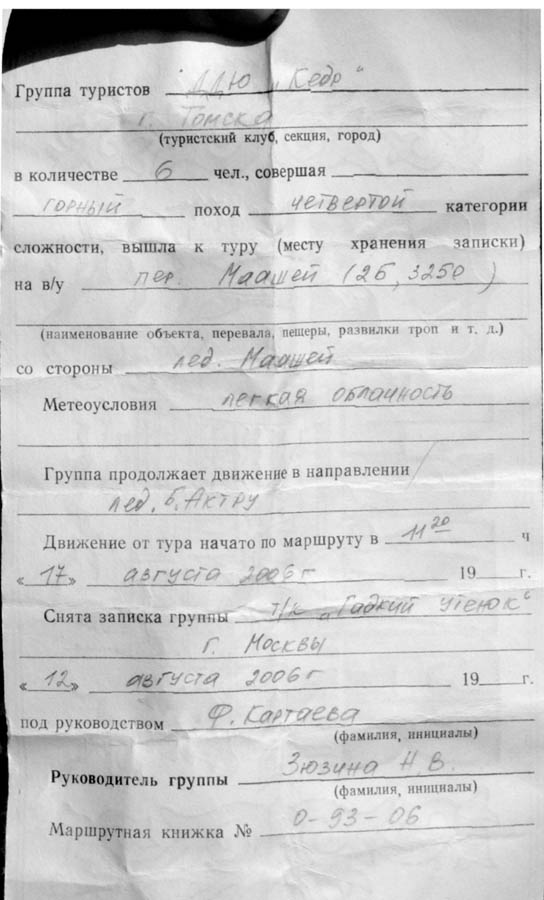 Группа туристов ДДЮ „Кедр“
г. Томска
(туристский клуб, секция, город)
в количестве 6 чел., совершая
горный поход четвертой категории
сложности, вышла к туру (месту хранения записки)
на в/у пер. Маашей (2Б, 3250)
(наименование объекта, перевала, пещеры, развилки троп и т. д.)
со стороны лед. Маашей
Метеоусловия легкая облачность
Группа продолжает движение в направлении
лед. Б. Актру
Движение от тура начато по маршруту в 11 20 ч
« 17 » августа 2006 г 19 г.
Снята записка группы т/к „Гадкий утенок“
г. Москвы
« 12 » августа 2006 г 19 г.
под руководством Ф. Картаева
(фамилия, инициалы)
Руководитель группы Зюзина Н. В.
(фамилия, инициалы)
Маршрутная книжка № 0-93-06